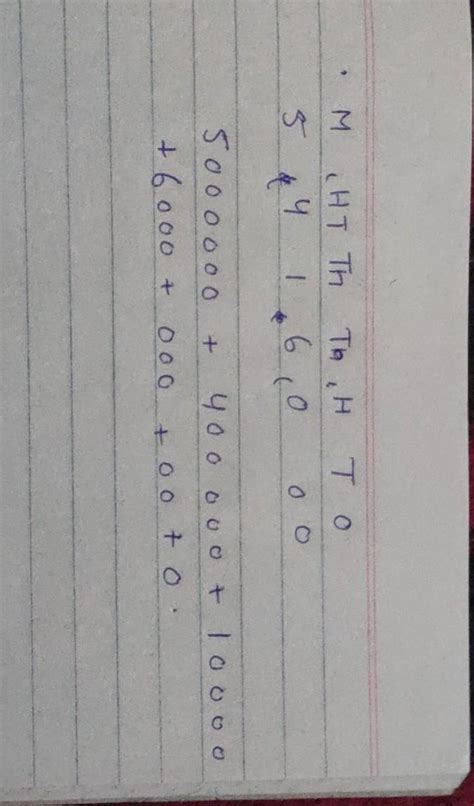 . M , HT Th Th , H T O
5 , 4 1 6 , 0 0 0
5000000 + 400000 + 10000
+ 6000 + 000 + 00 + 0 .